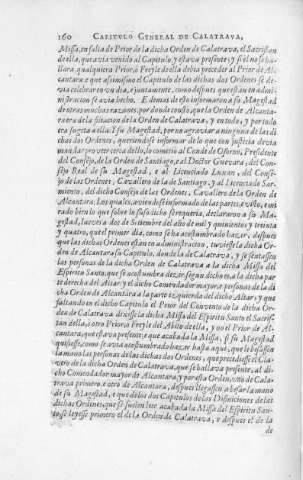 160 CAPITVLO GENERAL DE CALATRAVA,
Missa, en falta de Prior de la dicha Orden de Calatrava, el Sacristan
della, que avia venido al Capitulo, y estava presente; y si el no se ha-
llara, qualquiera Prior, ò Freyle della devia preceder al Prior de Al-
cantara: e que assimismo el Capitulo de las dichas dos Ordenes se de-
via celebrar en vn dia, è juntamente, como despues que està en admi-
nistracion se avia hecho. E demas desto informaron a su Magestad
de otras muchas razones, por donde consiò, que la Orden de Alcanta-
ra era de la filiacion de la Orden de Calatrava, y en todo, y por todo
era sugeta a ella. E su Magestad, por no agraviar a ninguna de las di-
chas dos Ordenes, queriendose informar de lo que con justicia devia
mandar proveer cerca dello, lo cometiò al Conde de Ossorno, Presidente
del Consejo, de la Orden de Santiago, è al Doctor Guevara, del Con-
sejo Real de su Magestad, e al Licenciado Luxan, del Conse-
jo de las Ordenes, Cavallero de la de Santiago, y al Licenciado Sar-
miento, del dicho Consejo de las Ordenes, Cavallero de la Orden de
Alcantara. Los quales, aviendose informado de las partes, è visto, è mi-
rado bien lo que sobre lo susodicho se requeria, declararon a su Ma-
gestad, Iueves a dos de Setiembre del año de mil y quinientos y treinta
y quatro, que el primer dia, como se ha acostumbrado hazer, despues
que las dichas Ordenes estan en administracion, tuviesse la dicha Or-
den de Alcantara su Capitulo, donde la de Calatrava, y se sentassen
las personas de la dicha Orden de Calatrava a la dicha Missa del
Espiritu Santo, que se acostumbra dezir, segun dicho es, a la dicha par-
te derecha del Altar: y el dicho Comendador mayor, e personas de la di-
cha Orden de Alcantara a la parte izquierda del dicho Altar: y que
faltando en el dicho Capitulo el Prior del Convento de la dicha Or-
den de Calatrava dixesse la dicha Missa del Espiritu Santo el Sacris-
tan della, ò otro Prior, ò Freyle del Abito della, y no el Prior de Al-
cantara, que estava presente; e que acabada la Missa, si su Magestad
quisiesse, como se avia acostumbrado hazer hasta aqui, que le besassen
la mano las personas de las dichas dos Ordenes, que precediesse el Cla-
vero de la dicha Orden de Calatrava, que se hallava presente, al di-
cho Comendador mayor de Alcantara, y por esta Orden, vno de Cala-
trava primero, e otro de Alcantara, despues llegassen a besar la mano
de su Magestad, e que de los dos Capitulos de las Difiniciones de las
dichas Ordenes, que se suelen leer acabada la Missa del Espiritu San-
to se leyesse primero el de la Orden de Calatrava, y despues el de la
de